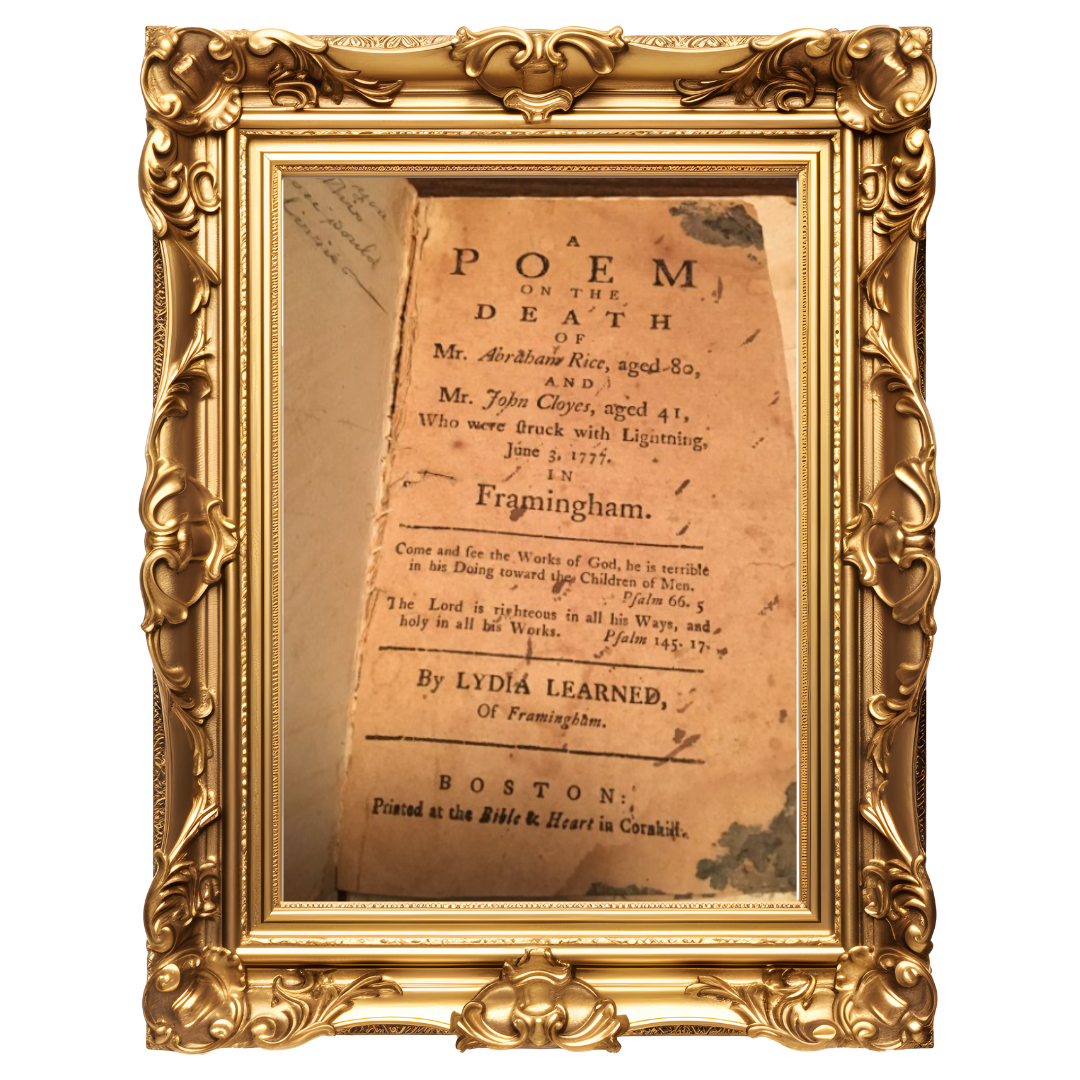 would
A
POEM
ON THE
DEATH
OF
Mr. Abraham Rice, aged 80,
AND
Mr. John Cloyes, aged 41,
Who were ſtruck with Lightning,
June 3, 1777.
IN
Framingham.
Come and ſee the Works of God, he is terrible
in his Doing toward the Children of Men.
Pſalm 66. 5
The Lord is righteous in all his Ways, and
holy in all his Works. Pſalm 145. 17.
By LYDIA LEARNED,
Of Framingham.
BOSTON:
Printed at the Bible & Heart in Cornhill.